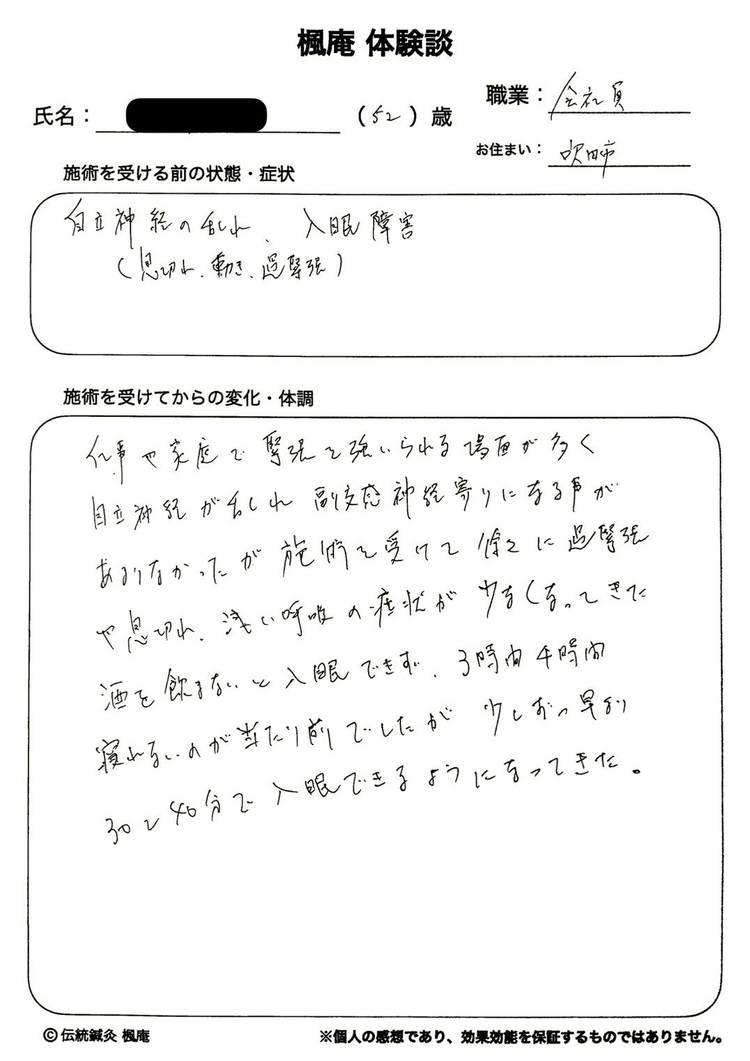 楓庵 体験談
氏名:
(52)歳
職業: 会社員
お住まい: 吹田市
施術を受ける前の状態・症状
自立神経の乱れ、入眠障害
(息切れ、動き、過緊張)
施術を受けてからの変化・体調
仕事や家庭で緊張を強いられる場面が多く
自立神経が乱れ副交感神経寄りになる事が
あまりなかったが施術を受けて徐々に過緊張
や息切れ、浅い呼吸の症状が少なくなってきた
酒を飲まないと入眠できず、3時間4時間
寝れないのが当たり前でしたが少しずつ早まり
30〜40分で入眠できるようになってきた。
©伝統鍼灸 楓庵
※個人の感想であり、効果効能を保証するものではありません。